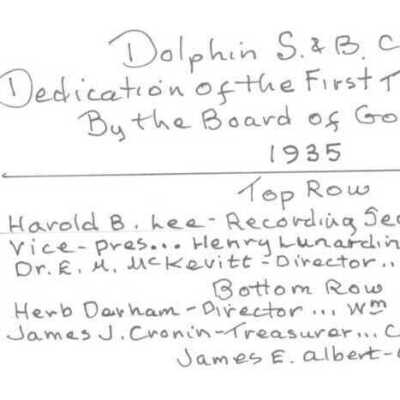 Dolphin S. & B. C
Dedication of the First T
By the Board of Go
1935
Top Row
Harold B. Lee - Recording Sec
Vice - Pres... Henry Lunardin
Dr. E. M. McKevitt - Director..
Bottom Row
Herb Derham - Director ... Wm
James J. Cronin - Treasurer ... C
James E. Albert -